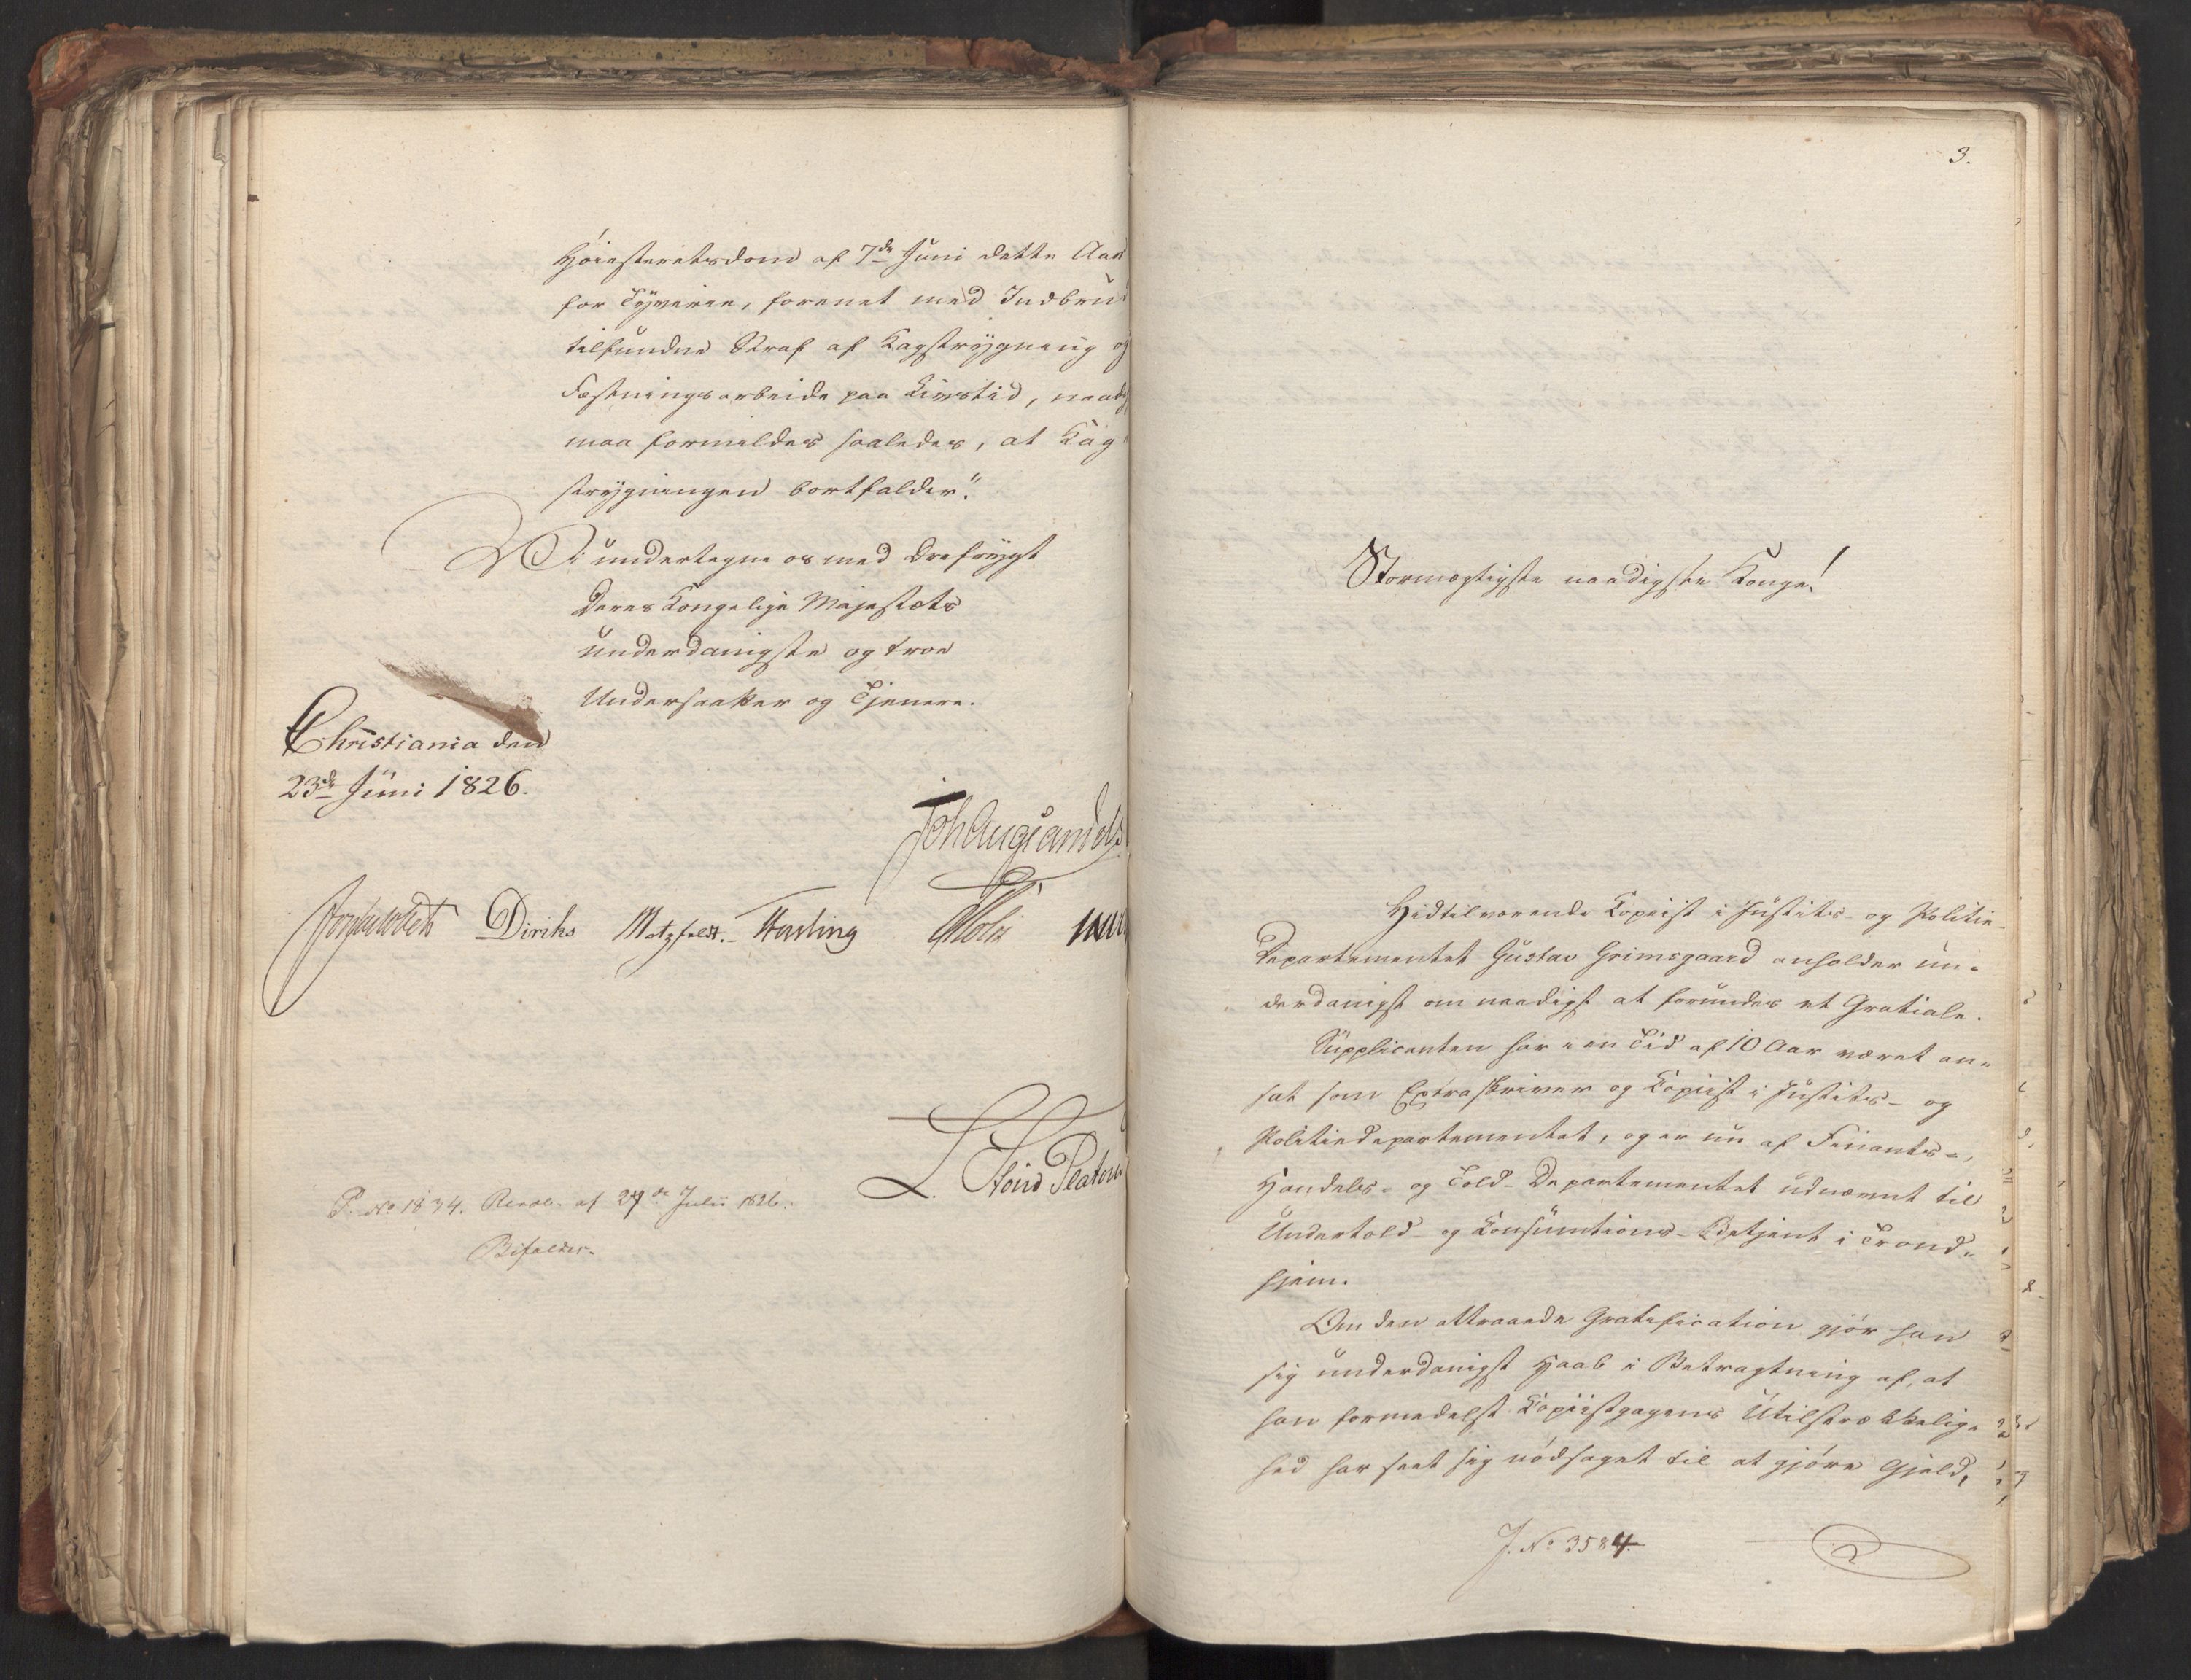 Høiesteretsdom af 7de Juni dette Aar
for Tyverie, forenet med Indbrud
tilfundne Straf af Kagstrygning og
Fæstningsarbeide paa Livstid, naadigst
maa formildes saaledes, at Kag-
strygningen bortfalder".
Vi undertegne os med Ærefrygt
Deres Kongelige Majestæts
underdanigste og troe
Undersaatter og Tjenere.
Christiania den
23de Juni 1826.
Joh Aug Sandels
Diriks Motzfeldt. Fasting Holst
L. Stoud Platou
P. No 1834. Resol. af 27de Julii 1826.
Bifaldes.
3.
Stormægtigste naadigste Konge!
Hidtilværende Kopiist i Justits- og Politie-
Departementet Gustav Grimsgaard anholder un-
derdanigst om naadigst at forundes et Gratiale.
Supplicanten har i en Tid af 10 Aar været an-
sat som Extraskriver og Kopiist i Justits- og
Politiedepartementet, og er nu af Finants-,
Handels- og Told-Departementet udnævnt til
Undertold- og Konsumtions-Betjent i Trond-
hjem.
Om den attraaede Gratification gjør han
sig underdanigst Haab i Betragtning af, at
han formedelst Kopiistgagens Utilstrækkelig-
hed har seet sig nødsaget til at gjøre Gjeld,
J. No 3584.